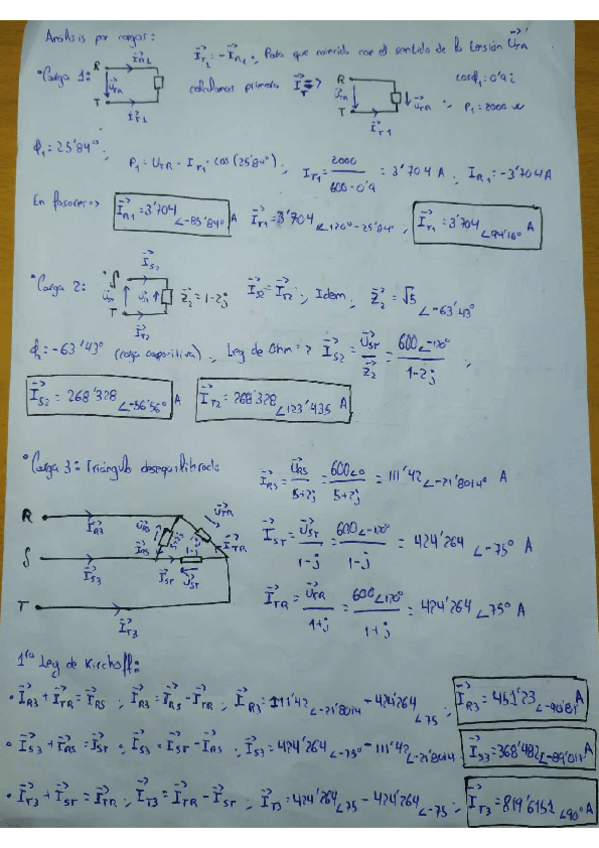 Análisis por cargas:
I⃗T1 = -I⃗R1 ; Para que coincida con el sentido de la tensión U⃗TR
°Carga 1: R I⃗R1 U⃗TR T I⃗T1 calculamos primero I⃗T => R U⃗TR T I⃗T1 U⃗TR ; cosϕ1=0'9 i P1=2000 w
ϕ1=25'84° ; P1=UTR·IT1·cos(25'84°) ; IT1 = 2000/600·0'9 = 3'704 A ; IR1=-3'704A
En fasores=> I⃗R1=3'704∠-85'84° A I⃗T1=3'704∠120°-25'84° ; I⃗T1=3'704∠94'16° A
°Carga 2: S I⃗S2 T I⃗T2 Z⃗2=1-2j I⃗S2=I⃗T2 ; Idem ; Z⃗2=√5∠-63'43°
ϕ2=-63'43° (carga capacitiva) ; Ley de Ohm => I⃗S2 = U⃗ST/Z⃗2 = 600∠-120°/1-2j ;
I⃗S2=268'328∠-56'56° A I⃗T2=268'328∠123'435 A
°Carga 3: Triángulo desequilibrado
I⃗RS = U⃗RS/5+2j = 600∠0/5+2j = 111'42∠-21'8014° A
R I⃗R3 U⃗RS I⃗RS U⃗TR I⃗TR
S I⃗S3 I⃗ST 1-j U⃗ST
T I⃗T3
I⃗ST = U⃗ST/1-j = 600∠-120°/1-j = 424'264∠-75° A
I⃗TR = U⃗TR/1+j = 600∠120°/1+j = 424'264∠75° A
1ra Ley de Kirchoff:
• I⃗R3+I⃗TR=I⃗RS ; I⃗R3=I⃗RS-I⃗TR ; I⃗R3=111'42∠-21'8014 - 424'264∠75 ; I⃗R3=451'23∠-90'81 A
• I⃗S3+I⃗RS=I⃗ST ; I⃗S3=I⃗ST-I⃗RS ; I⃗S3=424'264∠-75° - 111'42∠-21'8014 I⃗S3=368'482∠-89'011 A
• I⃗T3+I⃗ST=I⃗TR ; I⃗T3=I⃗TR-I⃗ST ; I⃗T3=424'264∠75 - 424'264∠-75 ; I⃗T3=819'6151∠90° A